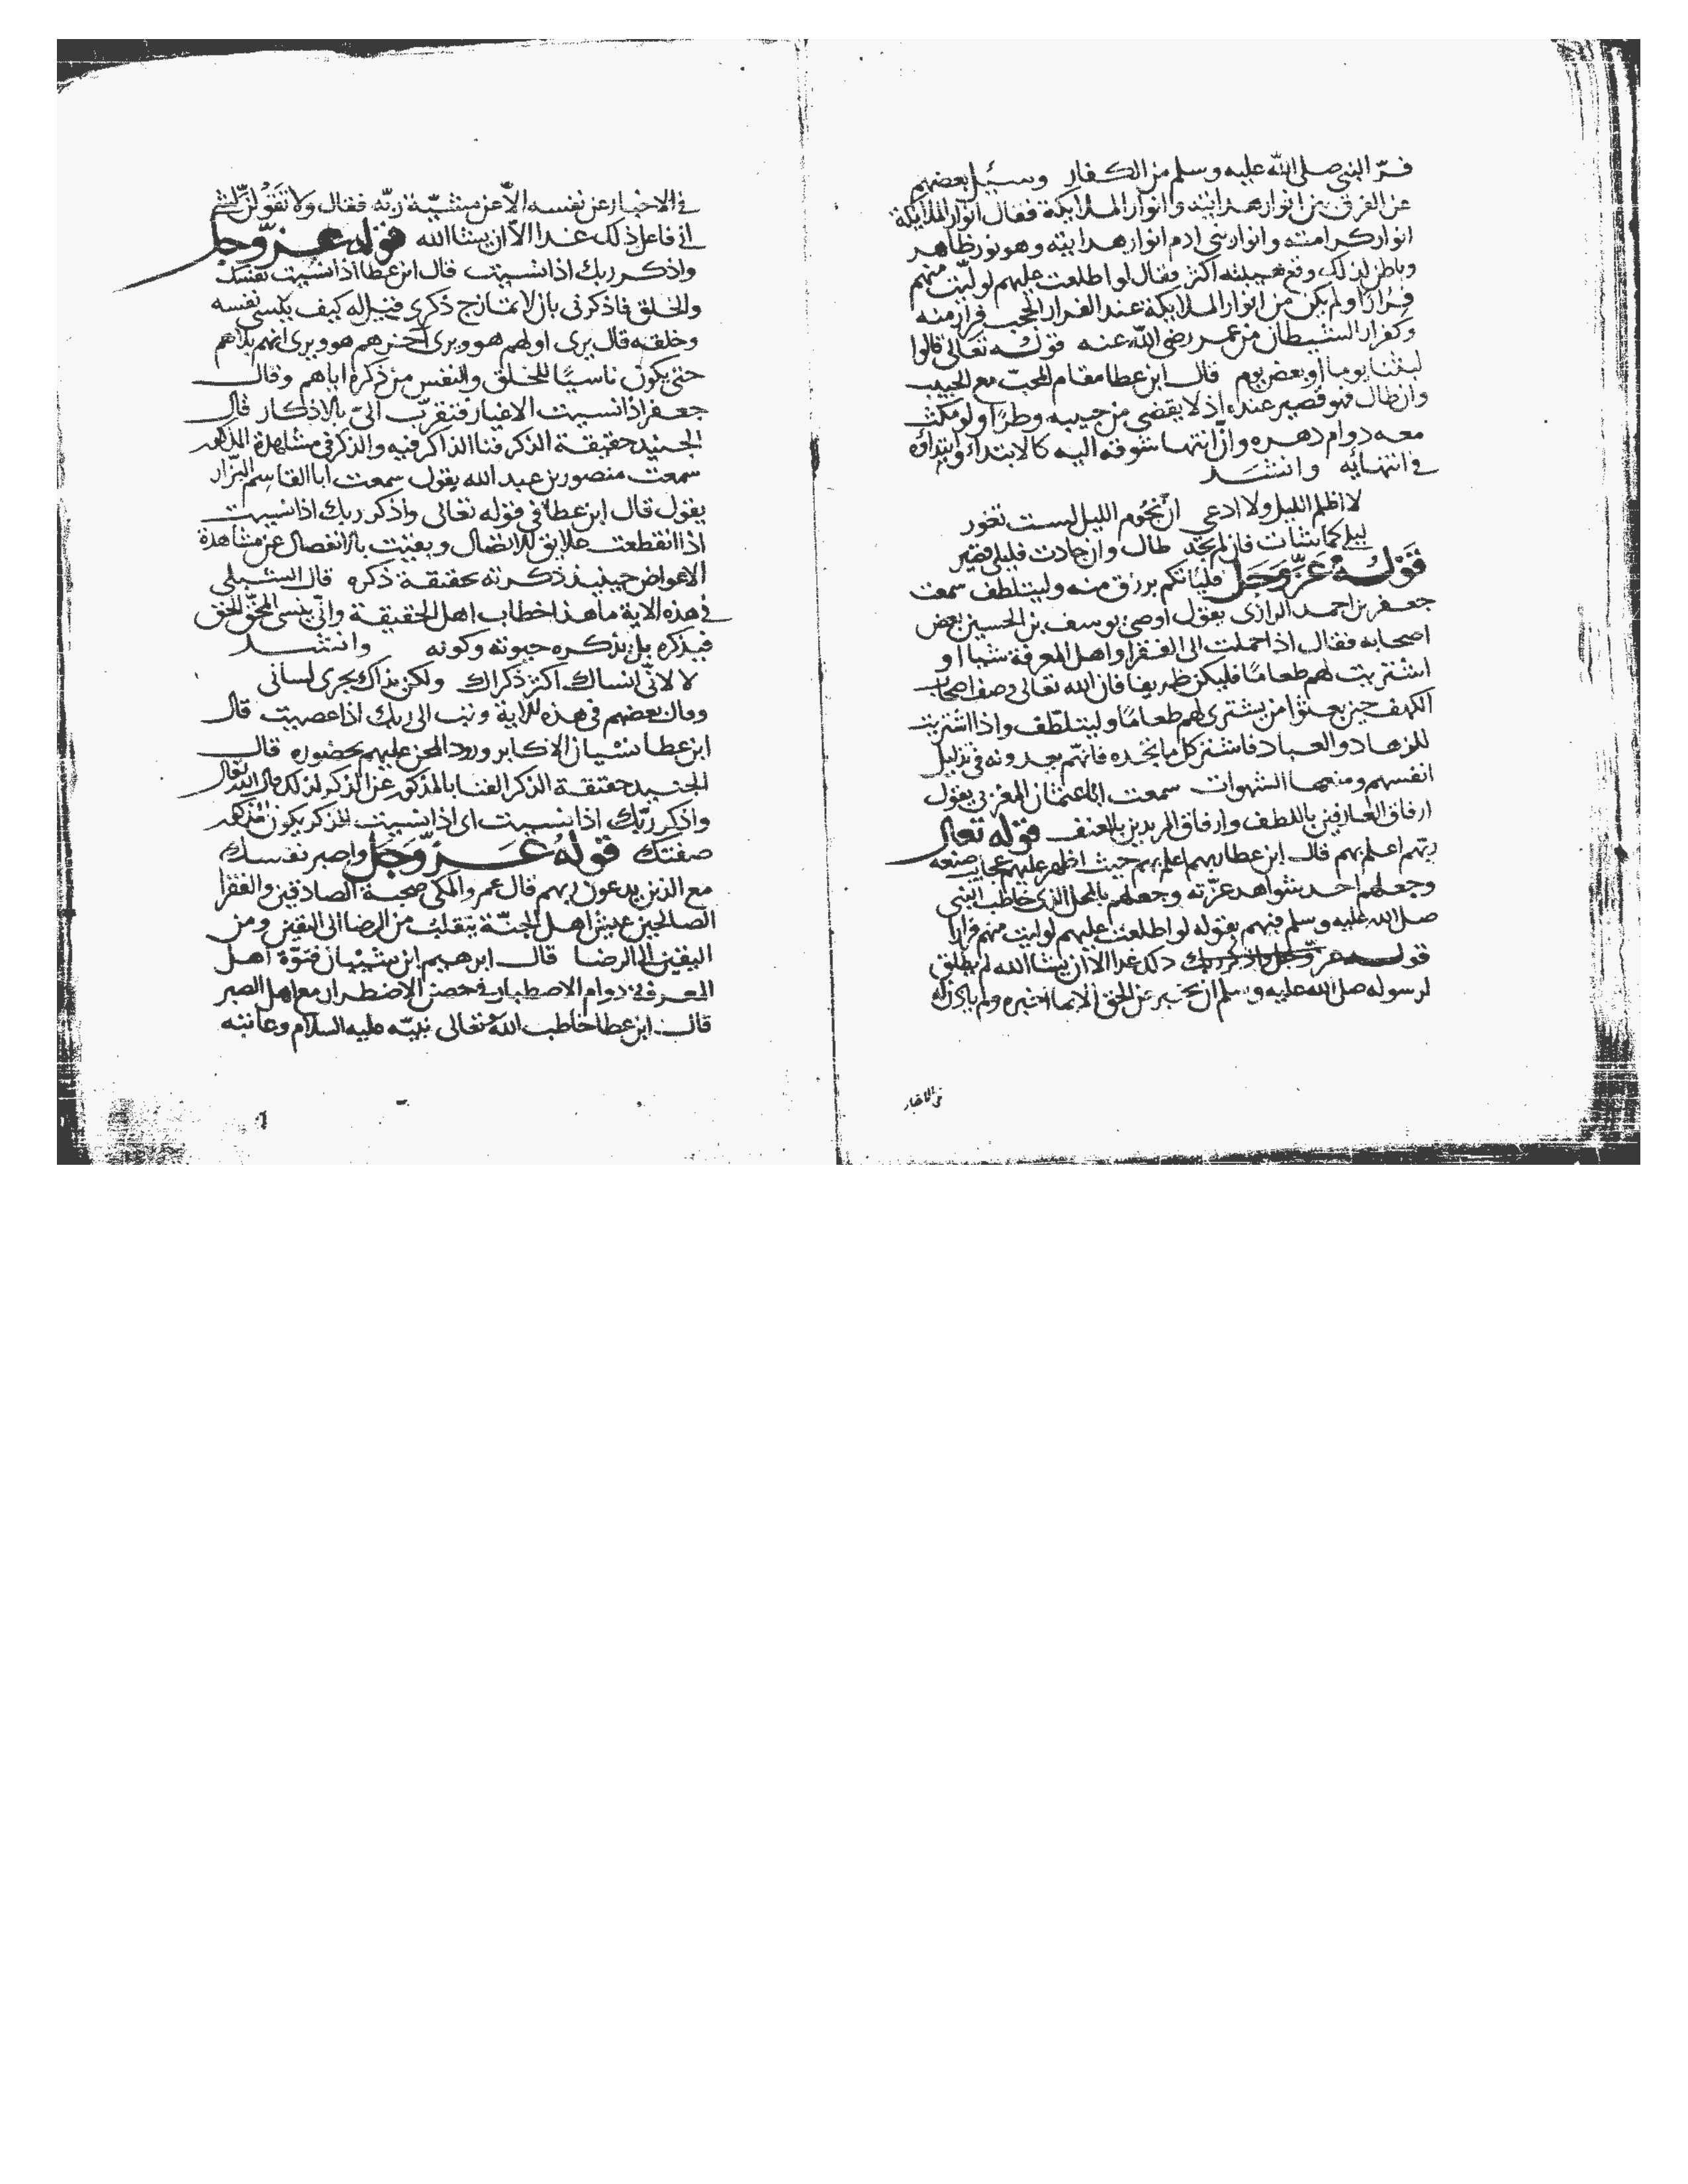 فرّ النبي صلى الله عليه وسلم من الكفار وسئيل بعضهم
عن الفرق بين انوار هدايته وانوار الملايكة فقال انوار الملايكة
انوار كرامته وانوار بني ادم انوار هدايته وهو نور ظاهر
وباطن لذلك وقع هيبته اكثر فقال لو اطلعت عليهم لوليّت منهم
فرارًا ولم يكن من انوار الملايكة عند الفرار الحجب فرار منه
وكفرار الشيطان من عمر رضي الله عنه قوله تعالى قالوا
لبثنا يوما أو بعض يوم قال ابن عطا مقام المحبّ مع الحبيب
وان طال فهو قصير عنده اذ لا يقضي من حبيبه وطرًا ولو مكث
معه دوام دهره وانّ انتها شوقه اليه كالابتداء وابتداؤه
في انتهائه وانشد
لا اظلم الليل ولا ادعي انّ نجوم الليل ليست تغور
ليلي كما شات فان لم يجد طال وان جادت فليلي قصير
قوله عزّ وجل فليأتكم برزق منه وليتلطف سمعت
جعفر بن احمد الرازى يقول اوصى يوسف بن الحسين بعض
اصحابه فقال اذا حملت الى الفقرا واهل المعرفة شيا او
اشتريت لهم طعامًا فليكن ظريفا فان الله تعالى وصف اصحاب
الكهف حين بعثوا من يشترى لهم طعامًا وليتلطّف واذا اشتريت
للزهاد والعباد فاشتر كل ما تجده فانهّم بعد ونه في تذليل
انفسهم ومنعها الشهوات سمعت اباعثمان المغربي يقول
ارفاق العارفين باللطف وارفاق المريدين بالعنف قوله تعالى
ربّهم اعلم بهم قال ابن عطا ربهم اعلم بهم حيث اظهر عليهم عجايب صنعه
وجعلهم احد شواهد عزّته وجعلهم بالمحل الذى خاطب النبي
صلى الله عليه وسلم فيهم بقوله لو اطلعت عليهم لوليت منهم فرارا
قوله عزّ وجل واذكر ربك ذلك غدا الا ان يشا الله لم يطلق
لرسوله صلى الله عليه وسلم ان يخبر عن الحق الا بما اخبره ولم ياذن له
في الاخبار
في الاخبار عن نفسه الّا عن مشيّة ربّه فقال ولا تقولنّ لشي
اني فاعل ذلك غدا الّا ان يشا الله قوله عزّ وجل
واذكر ربك اذا نسيت قال ابن عطا اذا نسيت نفسك
والخلق فاذكرني بان لا تمازج ذكرى فقيل له كيف ينسى نفسه
وخلقه قال يرى اولهم هو ويرى آخرهم هو ويرى انهم بلاهم
حتى يكون ناسيًا للخلق والنفس من ذكره اياهم وقال
جعفر اذا نسيت الاغيار فتقرّب الىّ بالاذكار قال
الجنيد حقيقة الذكر فنا الذاكر فيه والذكر في مشاهدة المذكور
سمعت منصور بن عبد الله يقول سمعت ابا القاسم البزّار
يقول قال ابن عطا في قوله تعالى واذكر ربك اذا نسيت
اذا انقطعت علايق للاتصال وبقيت بالانفصال عن مشاهدة
الاعواض حينيذ ذكرته بحقيقة ذكره قال الشبلى
في هذه الاية ما هذا خطاب اهل الحقيقة وانّى ينسى المحقّ الحق
فيذكره بل يذكره حيوته وكونه وانشد
لا لانّي انساك اكثر ذكراك ولكن بذاك يجرى لسانى
وقال بعضهم في هذه الاية وتب الى ربك اذا عصيت قال
ابن عطا نسيان الاكابر ورود المحن عليهم بحضوره قال
الجنيد حقيقة الذكر الفنا بالمذكور عن الذكر لذلك قال الله تعالى
واذكر ربّك اذا نسيت اى اذا نسيت الذكر يكون المذكور
صفتك قوله عزّ وجل واصبر نفسك
مع الذين يدعون ربهم قال عمرو المكى صحبة الصادقين والفقرا
الصالحين عيش اهل الجنّة يتقلب من الرضا الى اليقين ومن
اليقين الى الرضا قال ابرهيم ابن شيبان فتوّة اهل
المعرفة في دوام الاصطبار في حصن الاضطرار مع اهل الصبر
قال ابن عطا خاطب الله تعالى نبيّه عليه السلام وعاتبه